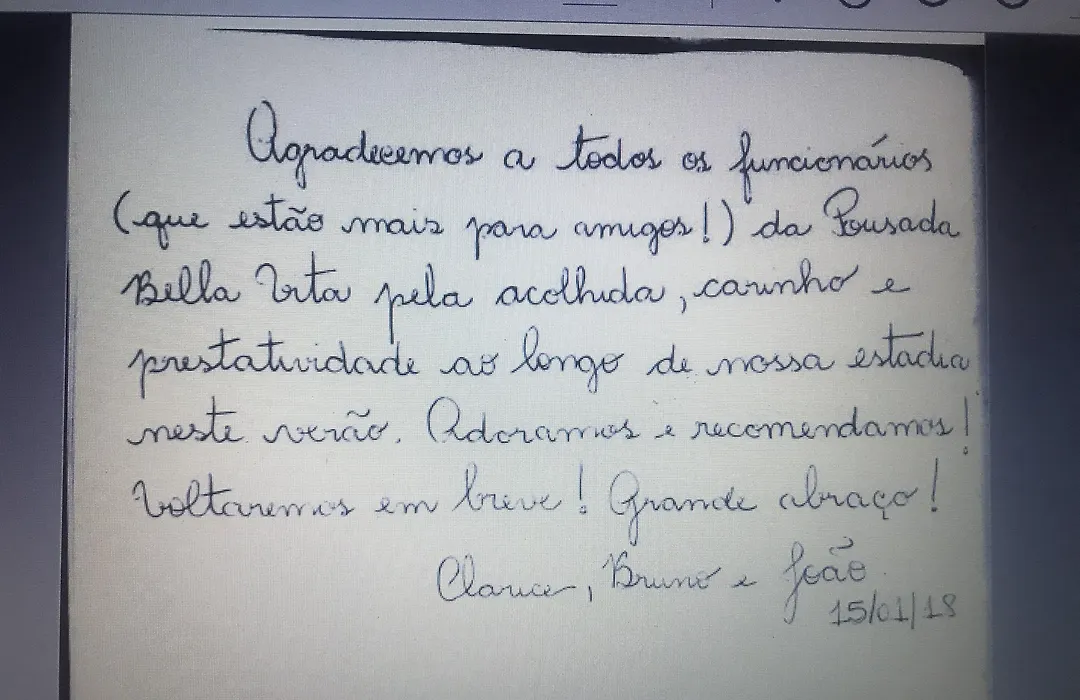 Agradecemos a todos os funcionários
(que estão mais para amigos!) da Pousada
Bella Vita pela acolhida, carinho e
prestatividade ao longo de nossa estadia
neste verão. Adoramos e recomendamos!
Voltaremos em breve! Grande abraço!
Clarice, Bruno e João.
15/01/18